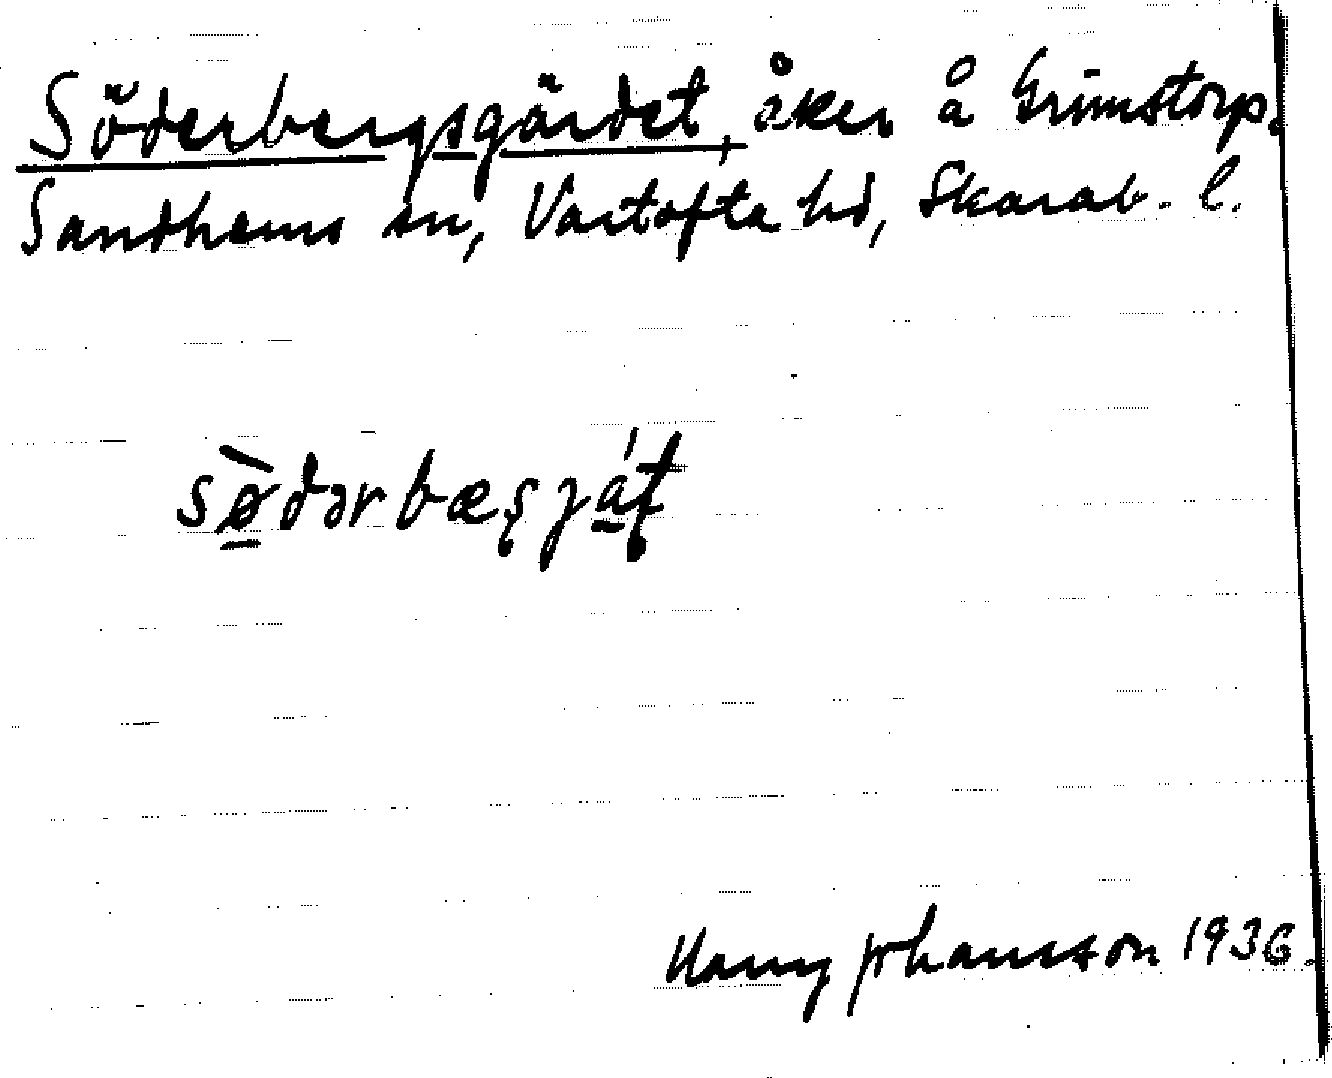 Söderbergsgärdet, åker å Grimstorp.
Sandhems sn, Vartofta hd, Skarab. l.
sø̀dərbæʂɡáʈ
Harry Johansson 1936.